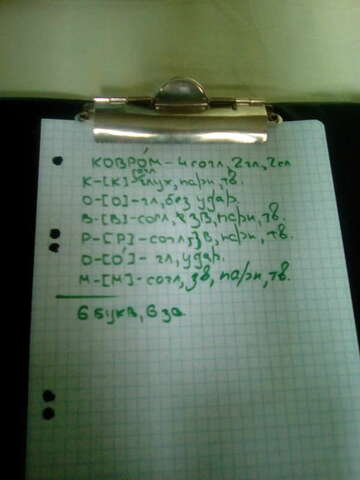 КОВРО́М-4согл, 2гл, 2сл
К-[К]-согл глух, парн, тв.
О-[О]-гл, без удар.
В-[В]-согл, зв, парн, тв.
Р-[Р]-согл, зв, парн, тв.
О-[О́]-гл, удар.
М-[М]-согл, зв, парн, тв.
6 букв, 6 зв